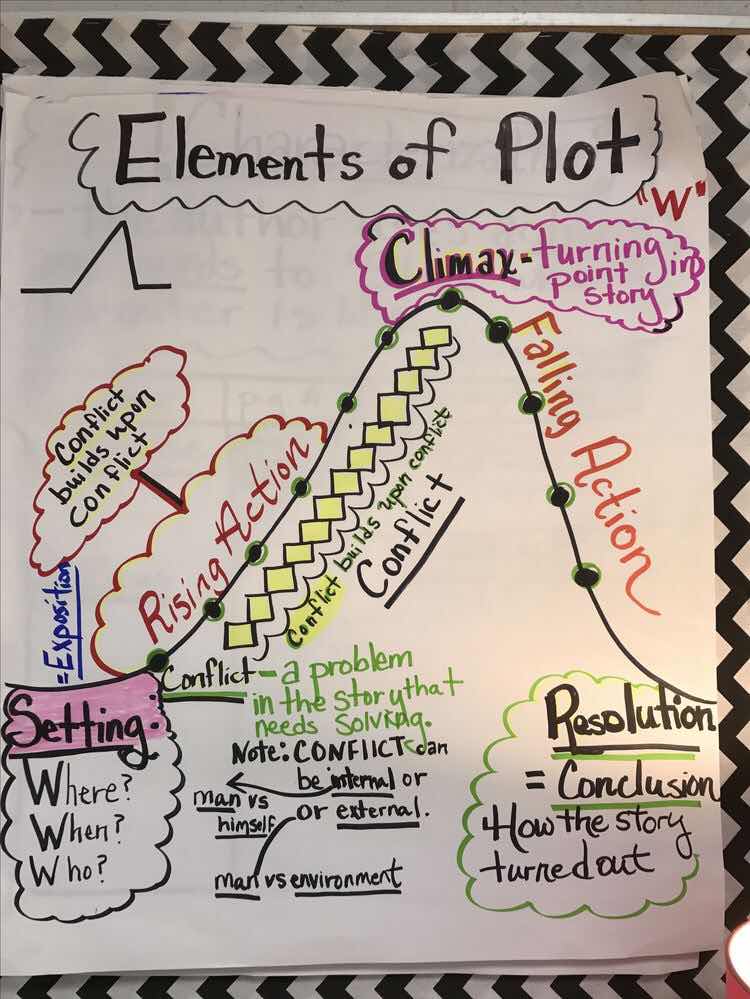 Elements of Plot
"W"
Climax - turning
point in
story
Falling Action
Conflict
builds upon
conflict
Rising Action
Conflict builds upon conflict
Conflict
= Exposition
Conflict - a problem
in the story that
needs solving.
Setting:
Where?
When?
Who?
Note: CONFlICT can
be internal or
or external.
man vs
himself
man vs environment
Resolution
= Conclusion
How the story
turned out